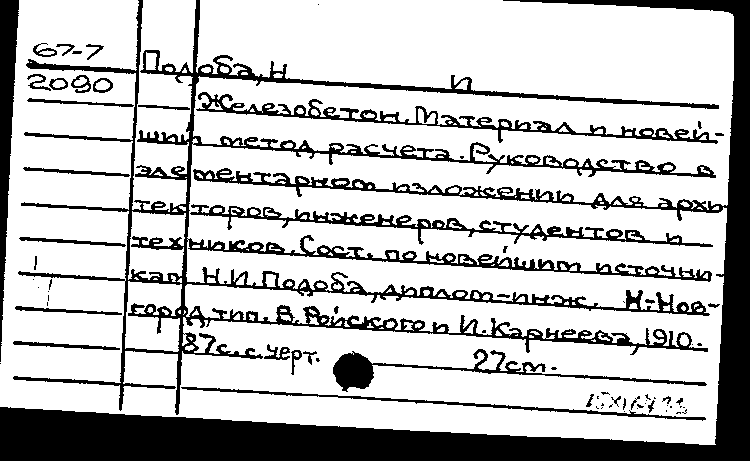 67-7
Подоба, Н И
2090
Железобетон. Материал и новей-
ший метод расчета. Руководство в
элементарном изложении для архи-
текторов, инженеров, студентов и
техников. Сост. по новейшим источни-
кам Н.И. Подоба, диплом-инж. Н-Нов-
город, тип. В. Ройского и И. Карнеева, 1910.
87с. с черт. 27см.